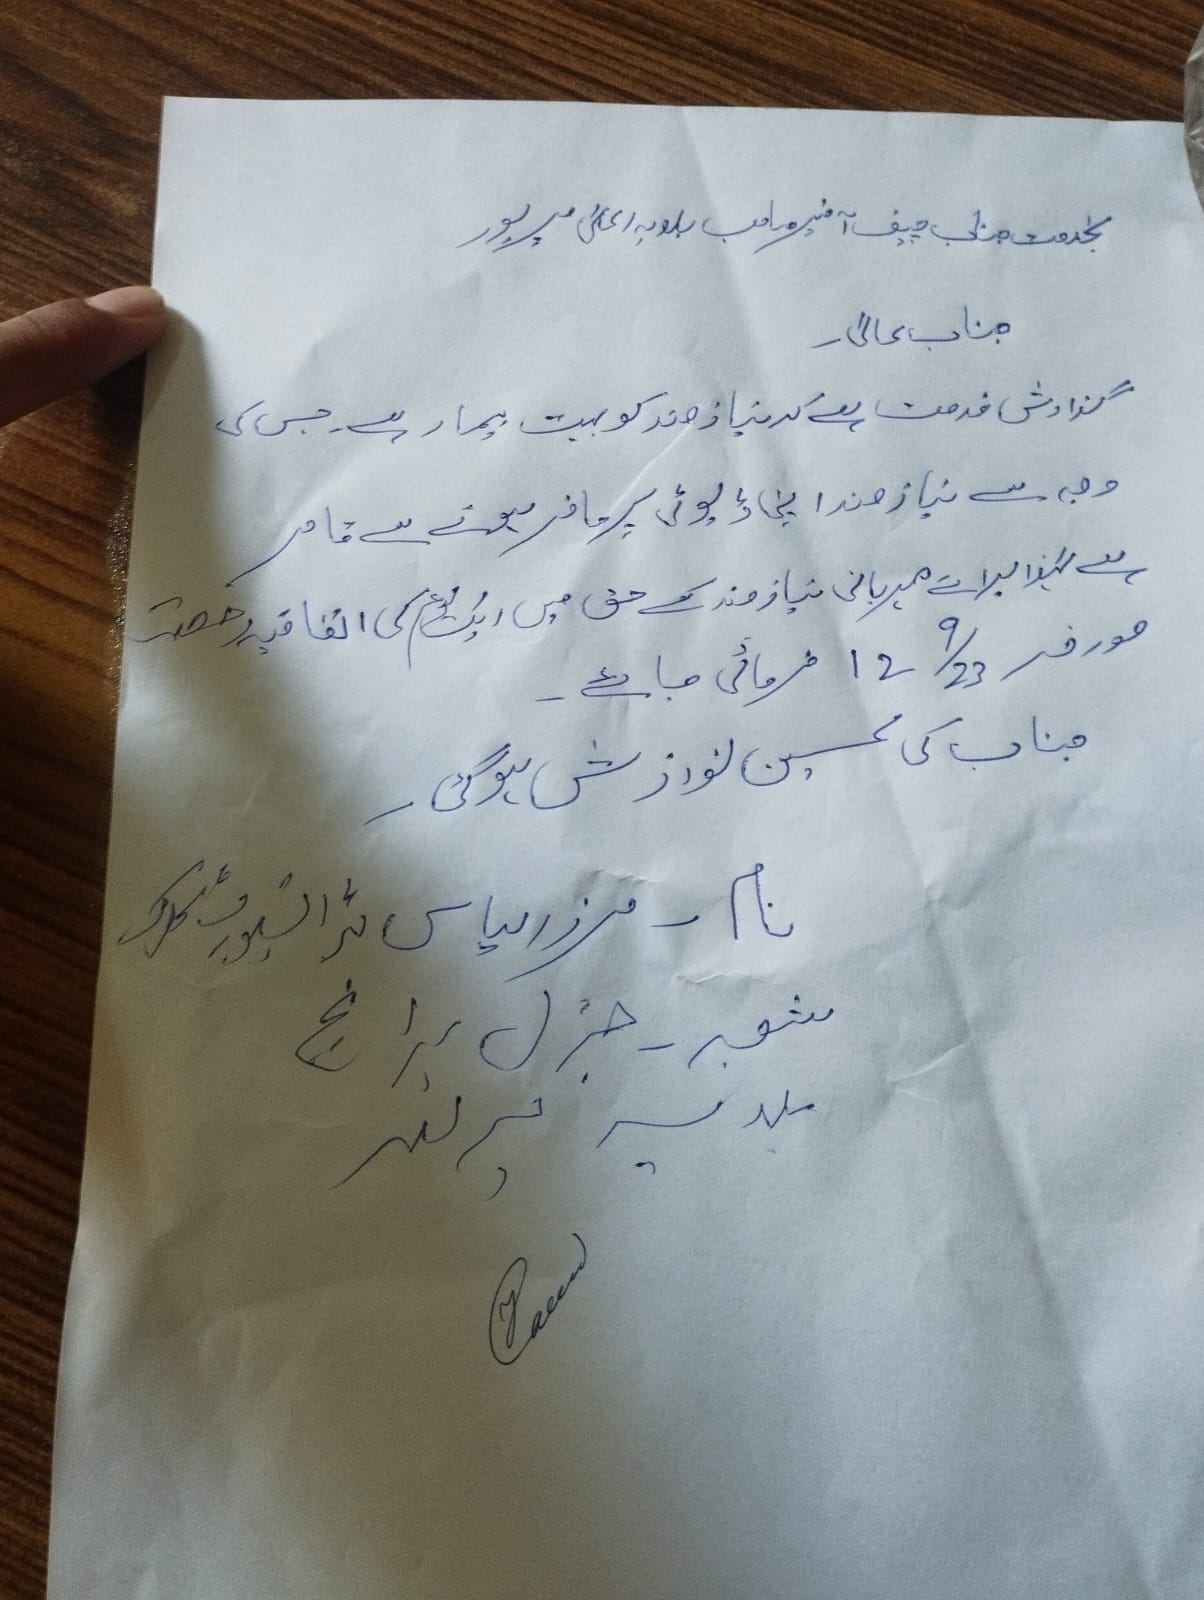 بخدمت جناب چیف آفیسر صاحب بلدیہ اعلیٰ میرپور
جناب عالی۔
گزارش خدمت ہے کہ نیازمند کو بہت بیمار ہے۔ جس کی
وجہ سے نیازمند اپنی ڈیوٹی پر حاضر ہونے سے قاصر
ہے لہذا برائے مہربانی نیازمند کے حق میں ایک یوم کی اتفاقیہ رخصت
مورخہ 12 9/23 فرمائی جائے۔
جناب کی عین نوازش ہوگئی۔
نام ۔ مرزا الیاس ٹرانسپورٹ کلرک
شعبہ ۔ جنرل برانچ
بلدیہ